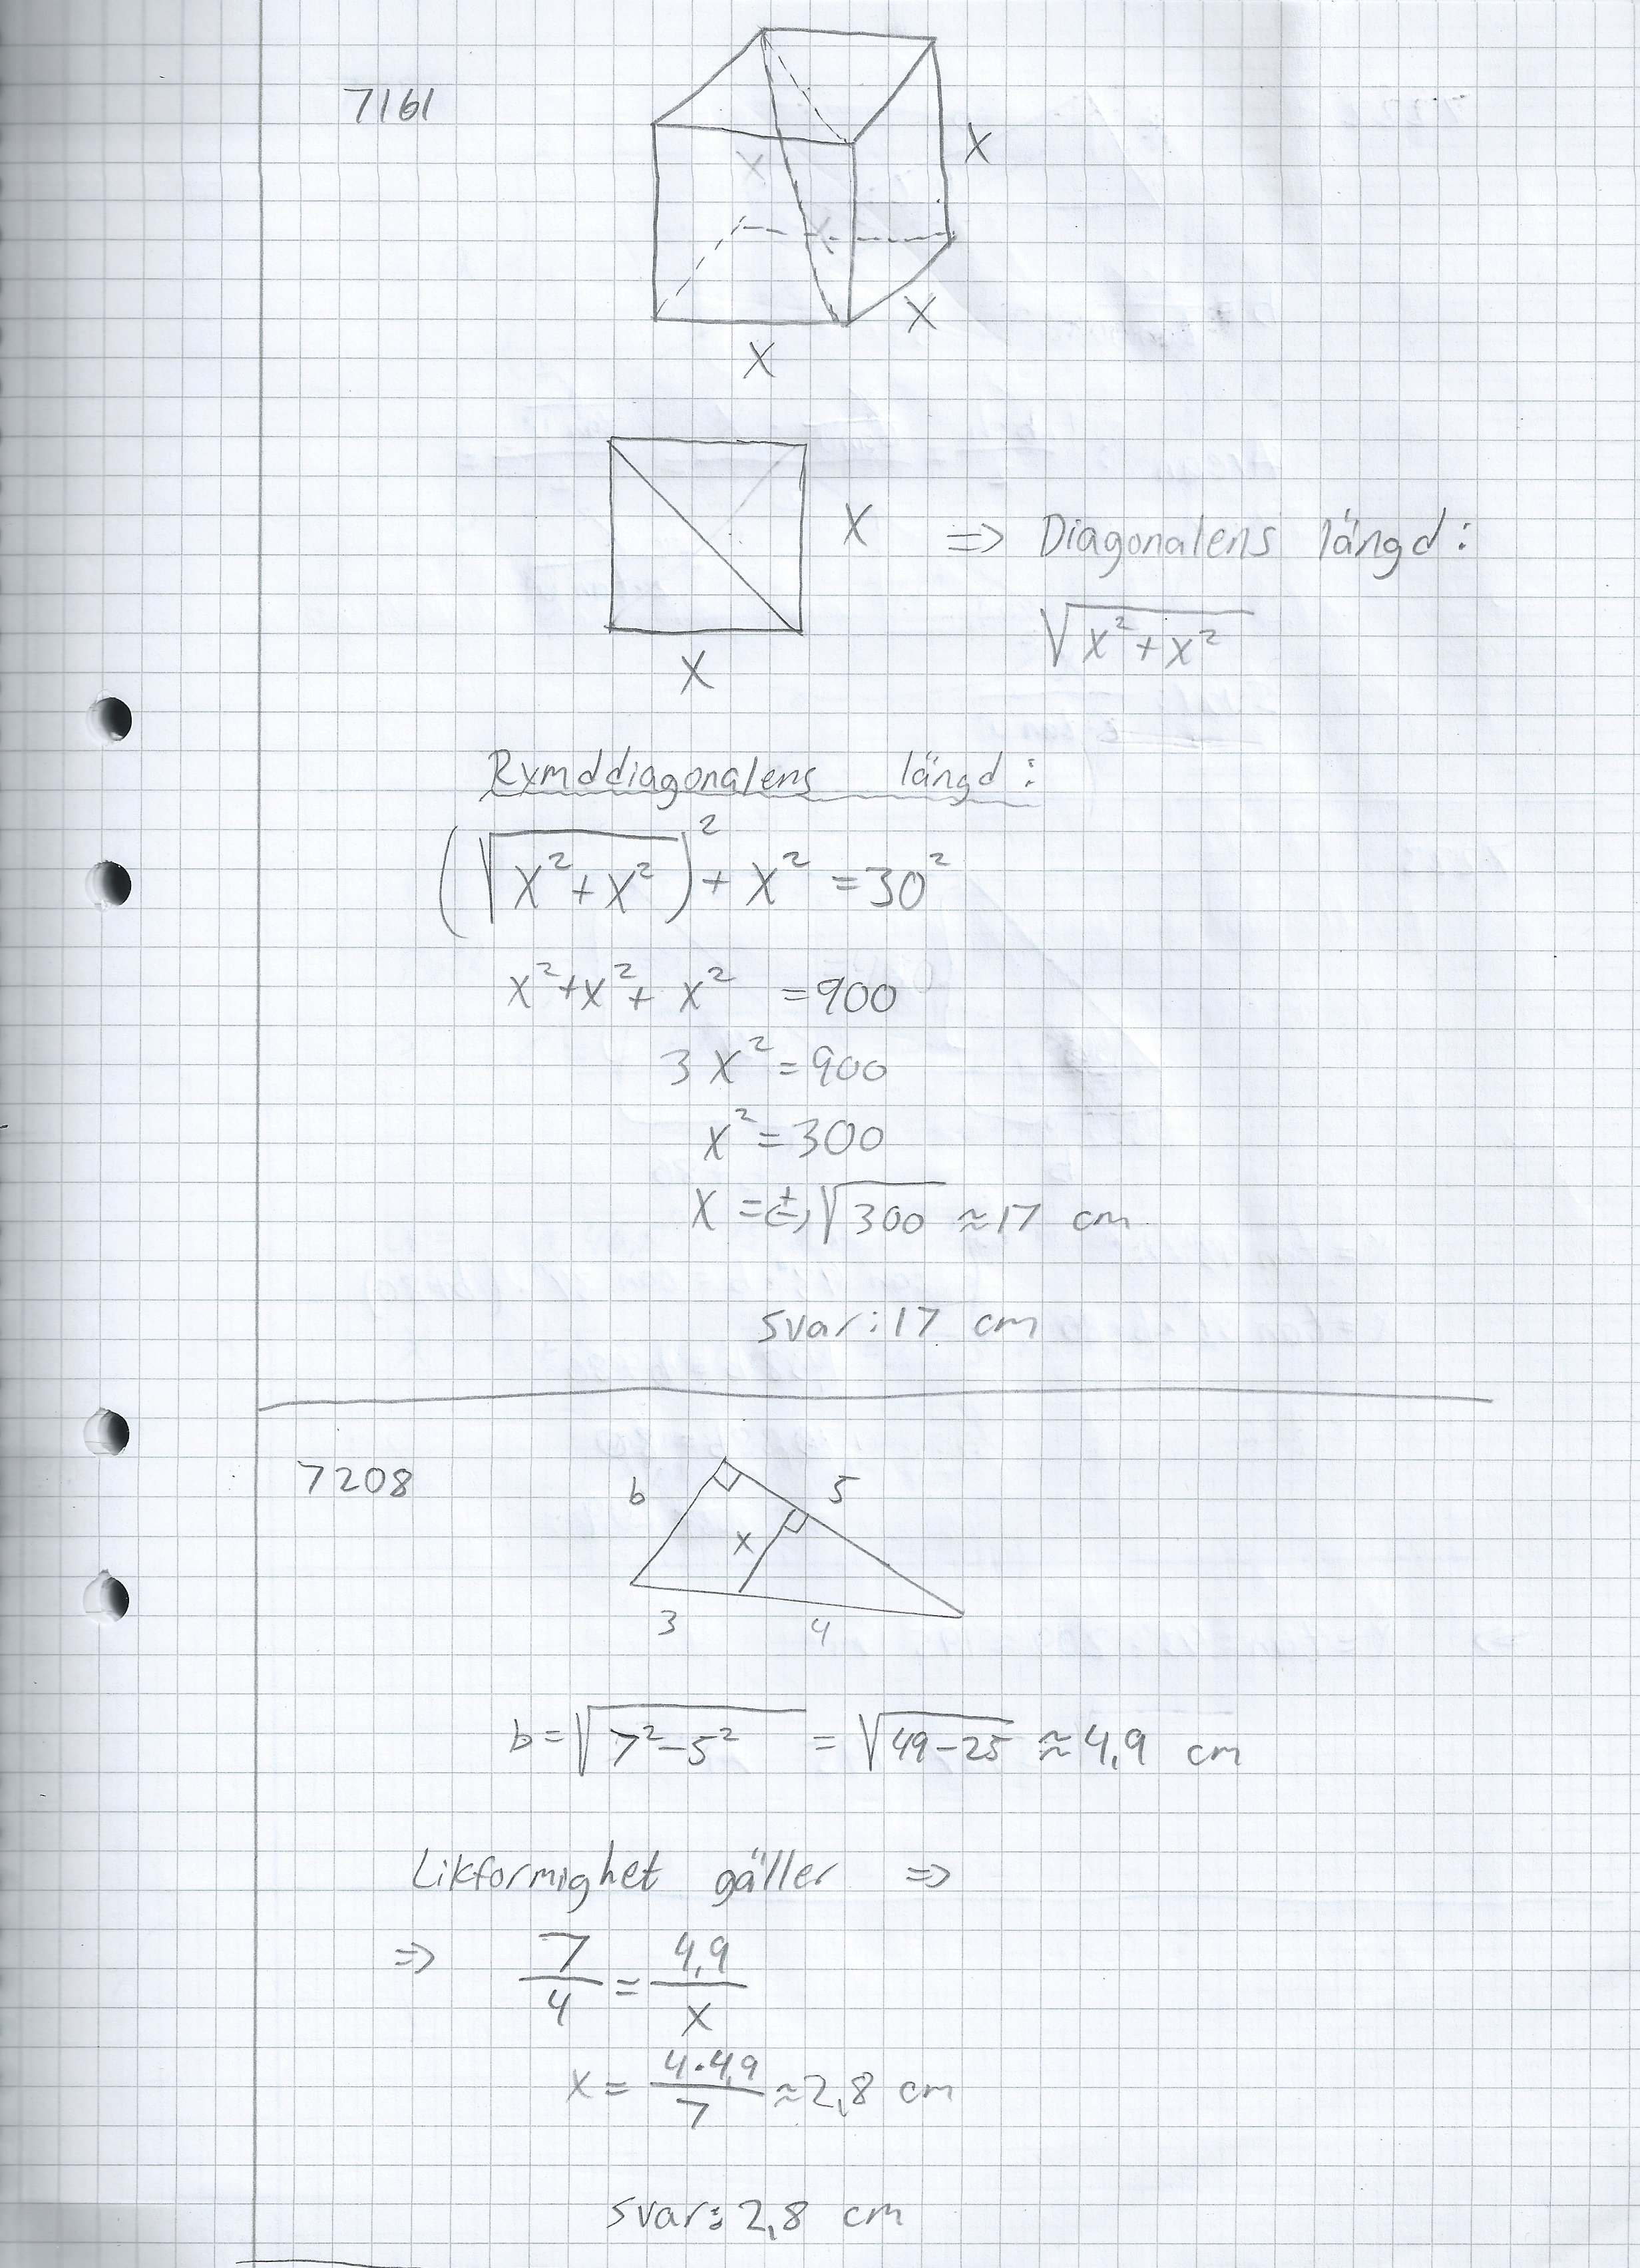 7161
X
X
X
X
X
X
X
⇒ Diagonalens längd:
√(x²+x²)
Rymddiagonalens längd:
(√(x²+x²))² + x² = 30²
x²+x²+ x² = 900
3x² = 900
x² = 300
x = (±)√300 ≈ 17 cm
svar: 17 cm
7208
b
5
x
3
4
b = √(7²-5²) = √(49-25) ≈ 4,9 cm
Likformighet gäller ⇒
⇒ 7/4 = 4,9/x
x = 4·4,9/7 ≈ 2,8 cm
svar: 2,8 cm